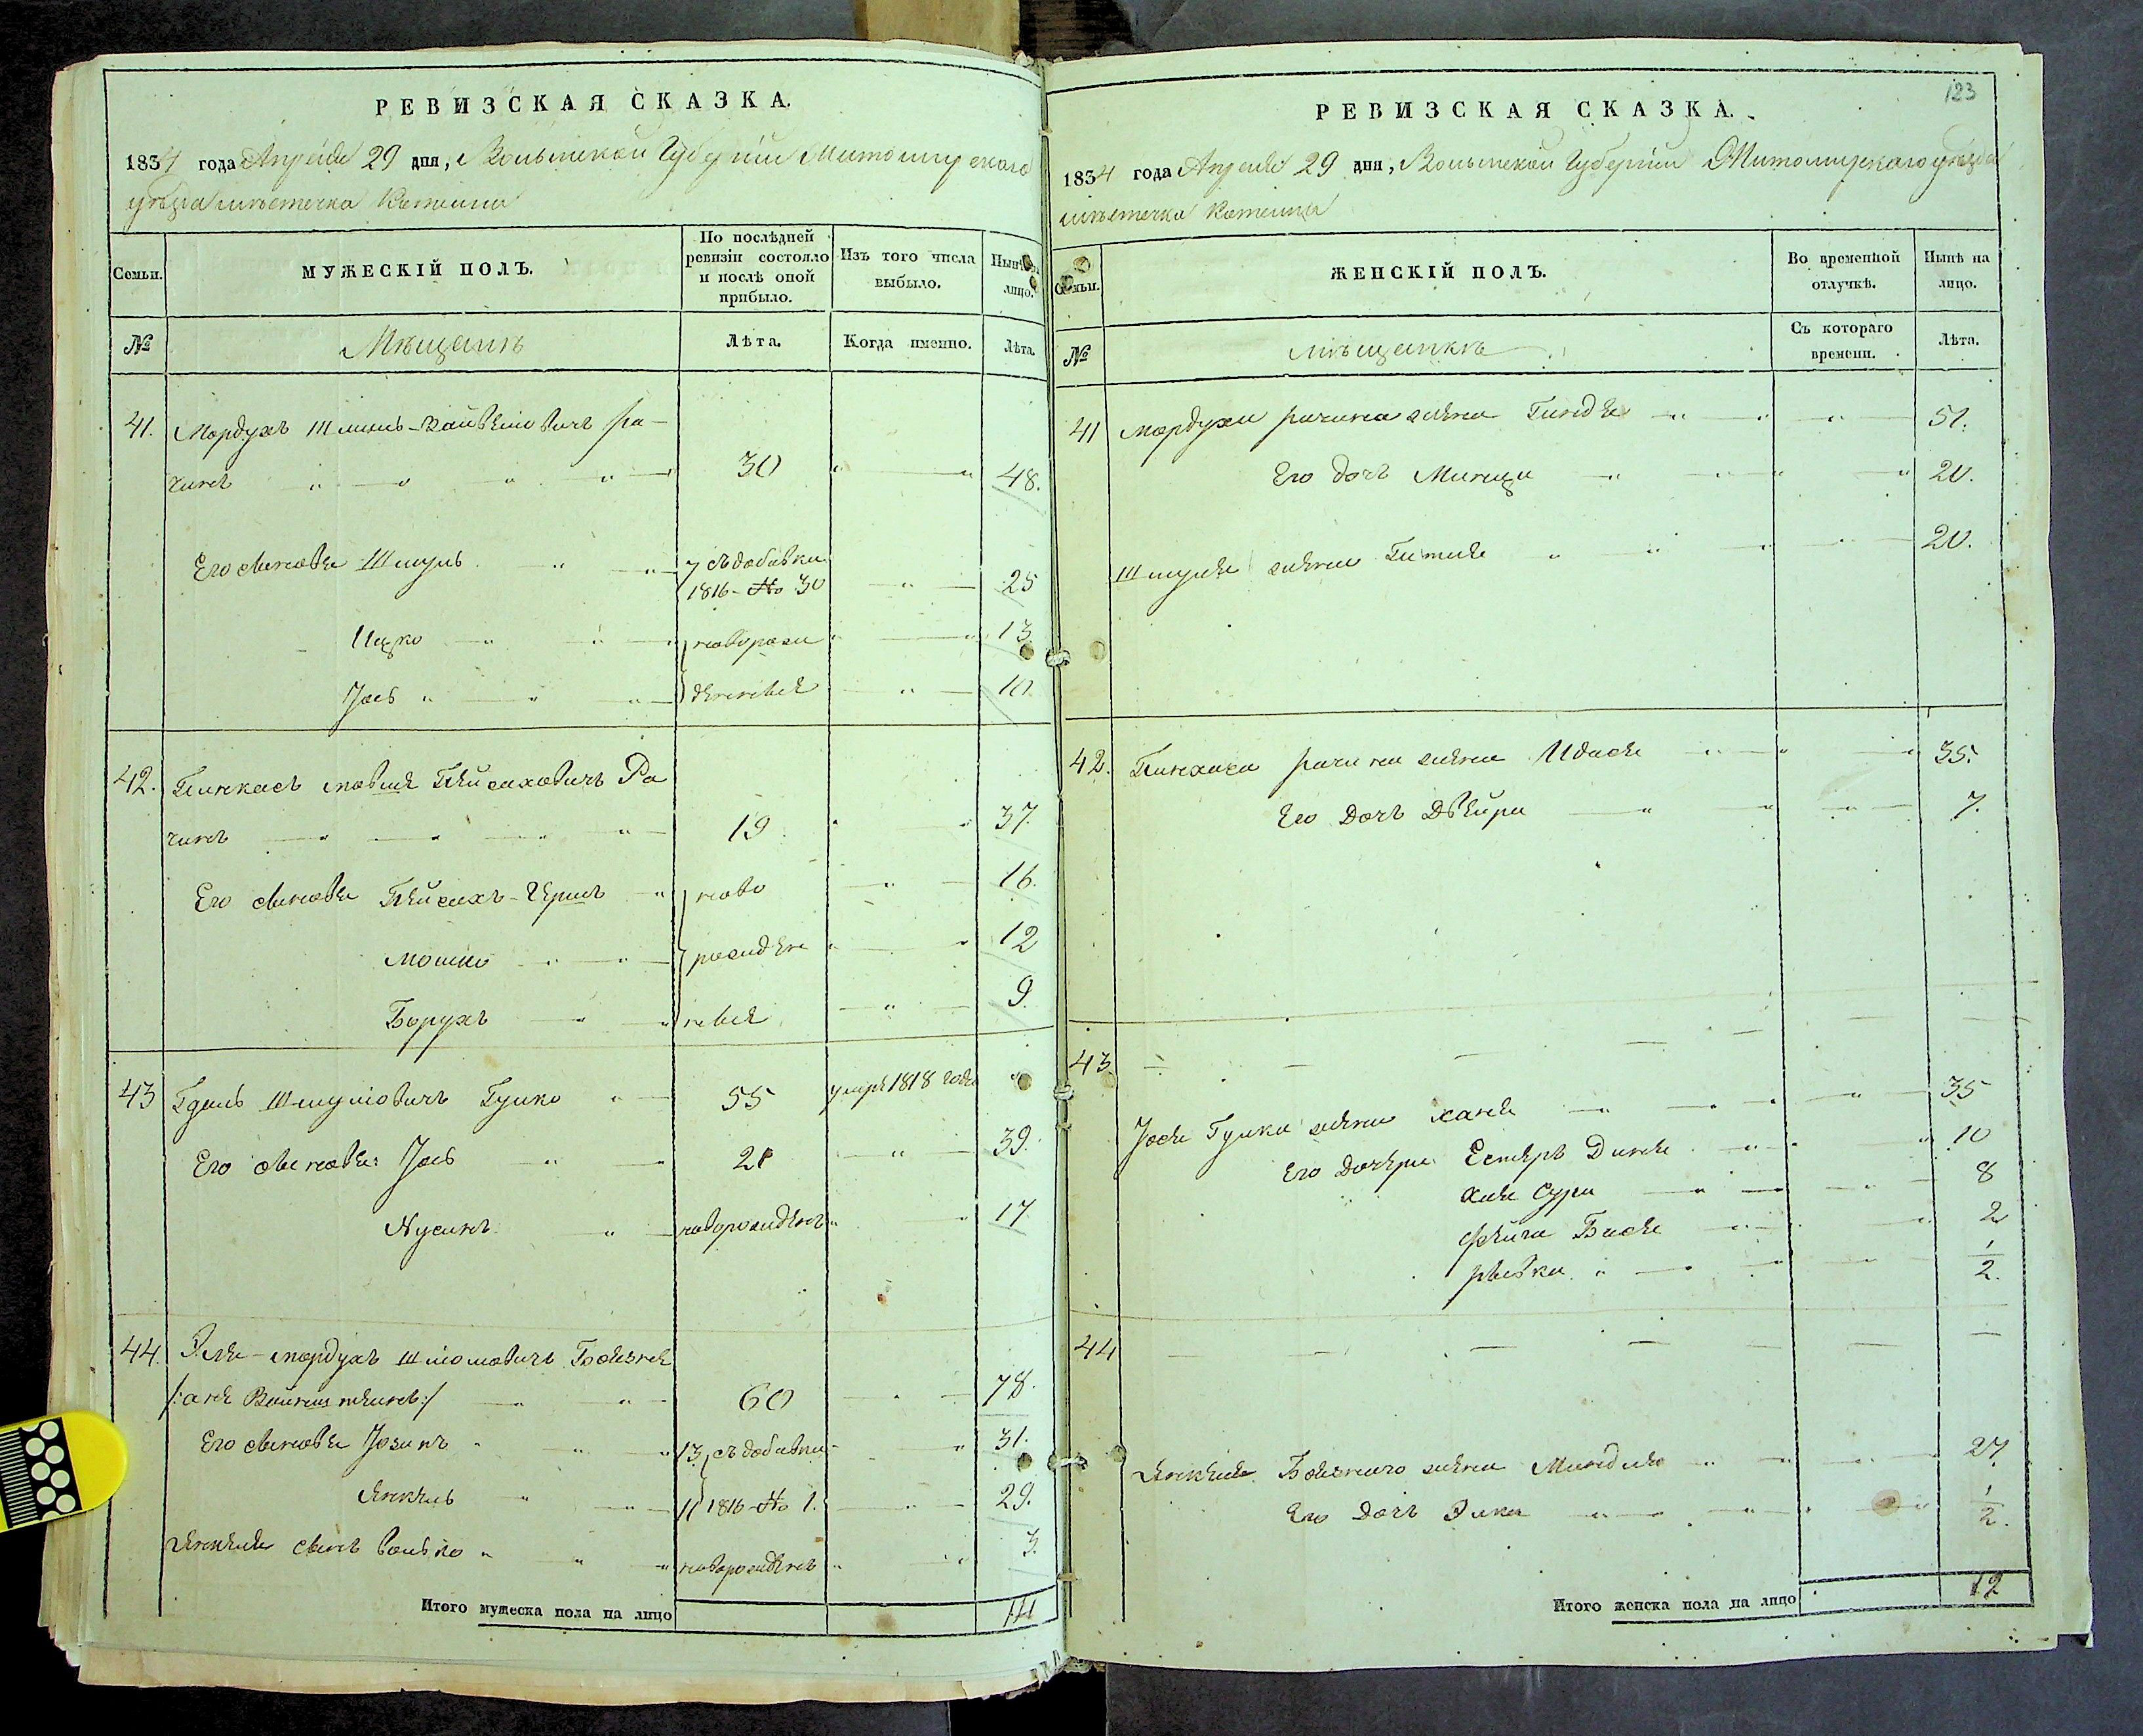 РЕВИЗСКАЯ СКАЗКА.
1834 года Апреля 29 дня, Волынской Губернии Житомирскаго
уезда местечка
Семьи.
МУЖЕСКІЙ ПОЛЪ.
По послѣдней ревизіи состояло и послѣ оной прибыло.
Изъ того числа выбыло.
Нынѣ на лицо.
№
Мѣщанъ
Лѣта.
Когда именно.
Лѣта.
41. Мордухъ Шлиомъ-Вольковичъ Ра-
чинъ 30 48.
Его сыновья Шмуль 7 съ добавки
1816 - No 30 25
Ицко новорож 13
Іось денные 10
42. Пинхасъ Пейсаховичъ Ра
чинъ 19 37
Его сыновья Пейсахъ-Герш ново 16.
Мошко рожден 12
Борухъ ные 9
43 Шмуловичъ Гулко 55 умре 1818 года
Его сыновья Іось 21 39.
Нусинъ новорожденъ 17
44. Эля-мордухъ Шломовичъ
60 78.
Его сыновья 13 съ добавки 31.
Янкель 11 1816 - No 1. 29.
Янкеля сынъ Волько новорожденъ 3.
Итого мужеска пола на лицо 14
123
РЕВИЗСКАЯ СКАЗКА.
1834 года Апреля 29 дня, Волынской Губернии Житомирскаго уезда
местечка
Семьи.
ЖЕНСКІЙ ПОЛЪ.
Во временной отлучкѣ.
Нынѣ на лицо.
№
мѣщанкѣ
Съ котораго времени.
Лѣта.
41 Мордуха рачина жена Гиндя 51.
Его дочь 20.
Шмуля жена Гитля 20.
42. Пинхаса рачина жена Идася 35.
Его дочь Двейра 7.
43.
Іося Гулка жена хана 35
Его дочери Естеръ Дина 10
Хая Сура 8
Фейга Бася 2
ривка 1/2.
44
Янкеля жена Миндля 27.
Его дочь Элка 1/2.
Итого женска пола на лицо 12